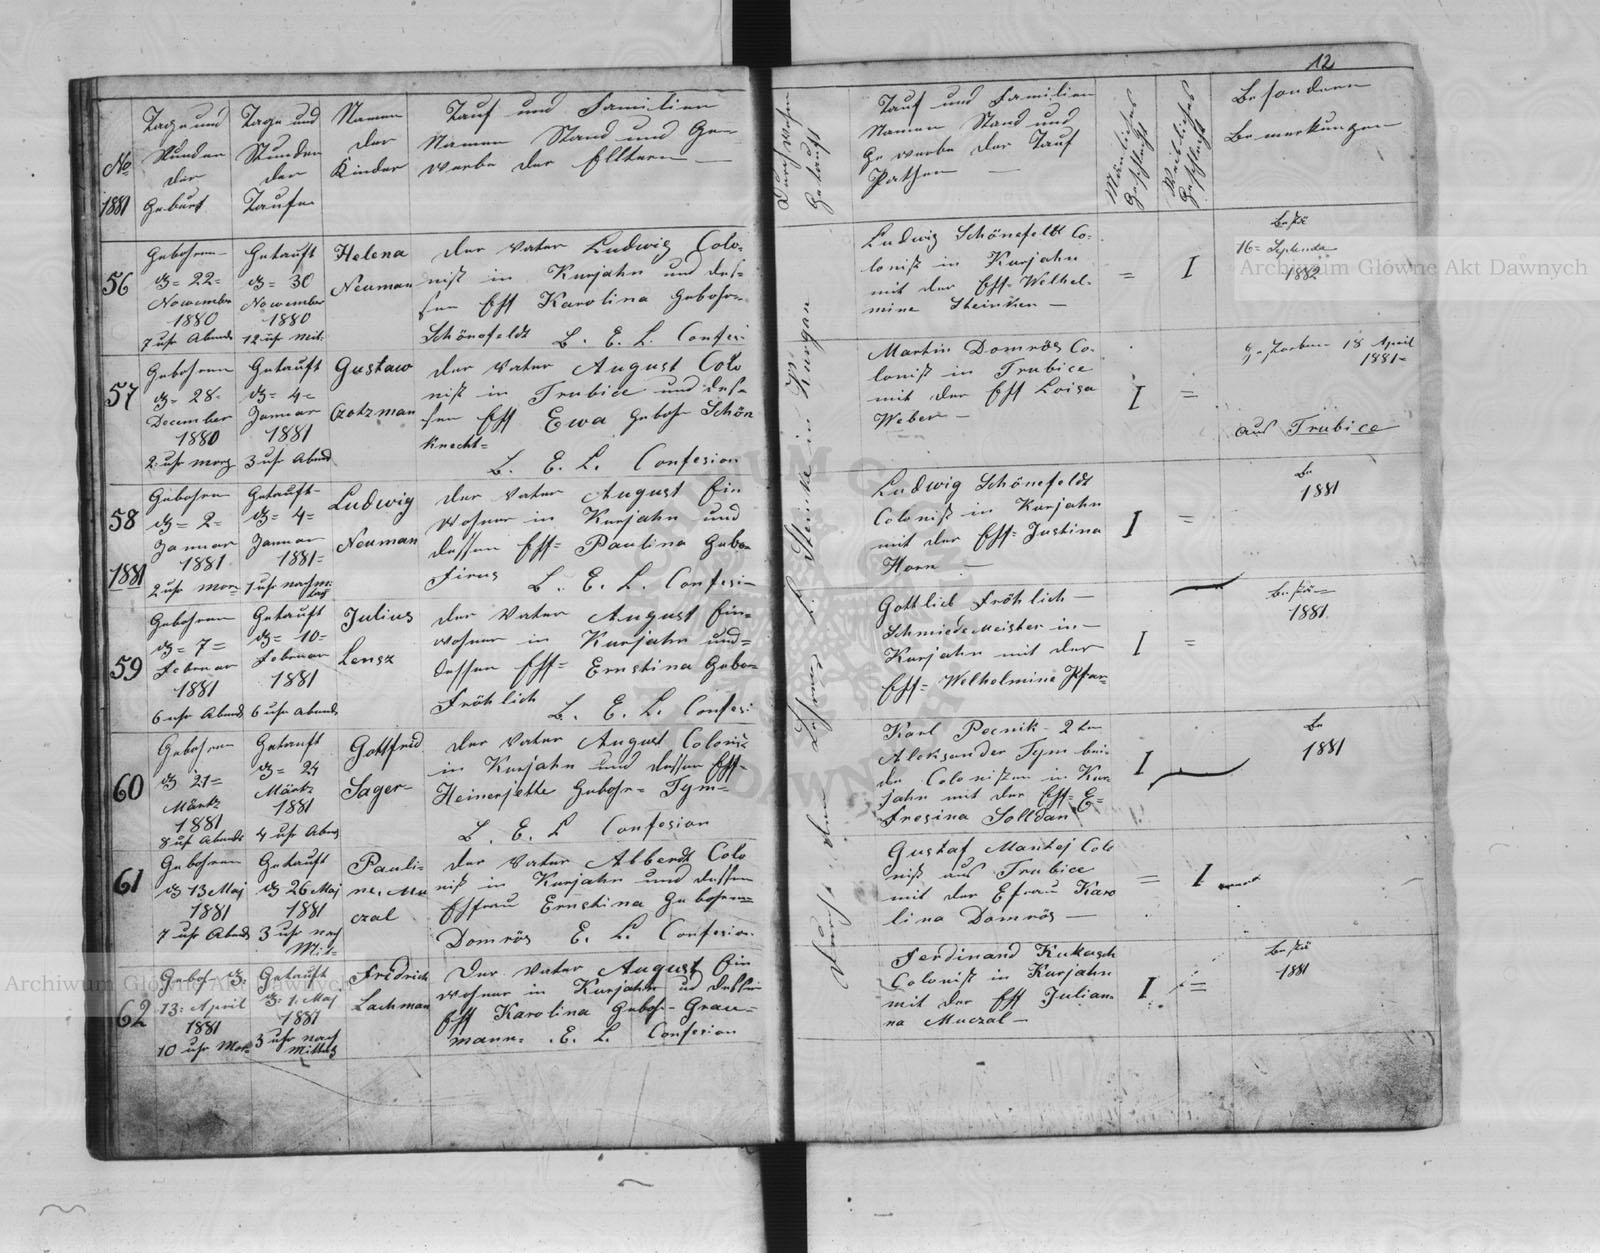 12
No
1881
Tage und
Stunden
der
Geburt
Tage und
Stunden
der
Taufe
Namen
der
Kinder
Tauf und Familien
Namen Stand und Ge=
werbe der Elltern —
Durch wehm
Getauft
Tauf und Familien
Namen Stand und
Gewerbe der Tauf
Pathen —
Mänliches
Geschlecht
Weibliches
Geschlecht
Besondere
Bemerkungen
56
Gebohren
d= 22=
November
1880
7 uhr Abends
Getauft
d= 30
November
1880
12 uhr Mit:
Helena
Neuman
der Vater Ludwig Colo=
nist in Kurjahn und des=
sen Ehf Karolina Gebohr=
Schönefeldt L. E. L. Confesi:
Ludwig Schönefeldt Co=
lonist in Kurjahn
mit der Ehf= Welhel=
mine Steinken —
=
I
16= Septemb
1882
57
Gebohren
d= 28=
December
1880
2 uhr morg
Getauft
d= 4=
Januar
1881
3 uhr Abend
Gustaw
Czotzman
der Vater August Colo
nist in Trubice und des=
sen Ehf Ewa Gebohr Schön
knecht=
L. E. L. Confesion
Martin Domrös Co=
lonist in Trubice
mit der Ehf Loisa
Weber —
I
=
gestorben 18 April
1881=
aus Trubice
58
1881
Gebohren
d= 2=
Januar
1881
2 uhr mor=
Getauft=
d= 4=
Januar
1881=
1 uhr nachmi=
tag
Ludwig
Neuman
der Vater August Ein
wohner in Kurjahn und
dessen Ehf= Paulina Gebo=
Firus L. E. L. Confesi=
Ludwig Schönefeldt
Colonist in Kurjahn
mit der Ehf= Justina
Horn —
I
=
1881
59
Gebohren
d= 7=
Februar
1881
6 uhr Abends
Getauft
d= 10=
Februar
1881
6 uhr abends
Julius
Lensz
der Vater August Ein=
wohner in Kurjahn und=
dessen Ehf= Ernstina Gebo=
Fröhlich L. E. L. Confesi:
Gottlieb Fröhlich —
Schmiede Meister in —
Kurjahn mit der
Ehf= Welhelmine
I
=
1881
60
Gebohren
d 21=
Märtz
1881
8 uhr Abends
Getauft
d= 24
Märtz
1881
4 uhr Abend
Gottfried
Sager=
der Vater August Colonis
in Kurjahn und dessen Ehf=
Heinerjette Gebohr= Tym=
L. E. L Confesion
Karl Pocnik 2 ten
Aleksander Tym bei=
de Colonisten in Kur=
jahn mit der Ehf= E=
fresina Solldan
I
1881
61
Gebohren
d 13 Maj
1881
7 uhr Abends
Getauft
d 26 Maj
1881
3 uhr nach
Mit=
Pauli=
ne. Mu
czal
der Vater Albbrdt Colo
nist in Kurjahn und dessen
Ehfrau Ernstina Gebohren=
Domrös E. L. Confesion
Gustaf Mantej Colo
nist aus Trubice
mit der Efrau Karo
lina Domrös —
=
I
62
Gebohr d.
13= April
1881
10 uhr Mor=
Getauft
d= 1. Maj
1881
3 uhr nach
mittag
Fredrich
Lachman
Der Vater August Ein
wohner in Kurjahn und dessen
Ehf Karolina Gebohr= Grau=
mann=. E. L. Confesion
Ferdinand Kukasch
Colonist in Kurjahn
mit der Ehf Julian=
na Muczal —
I
=
1881
Durch den Lehrer L. Steinke in Kurgan
Archiwum Główne Akt Dawnych
Archiwum Główne Akt Dawnych